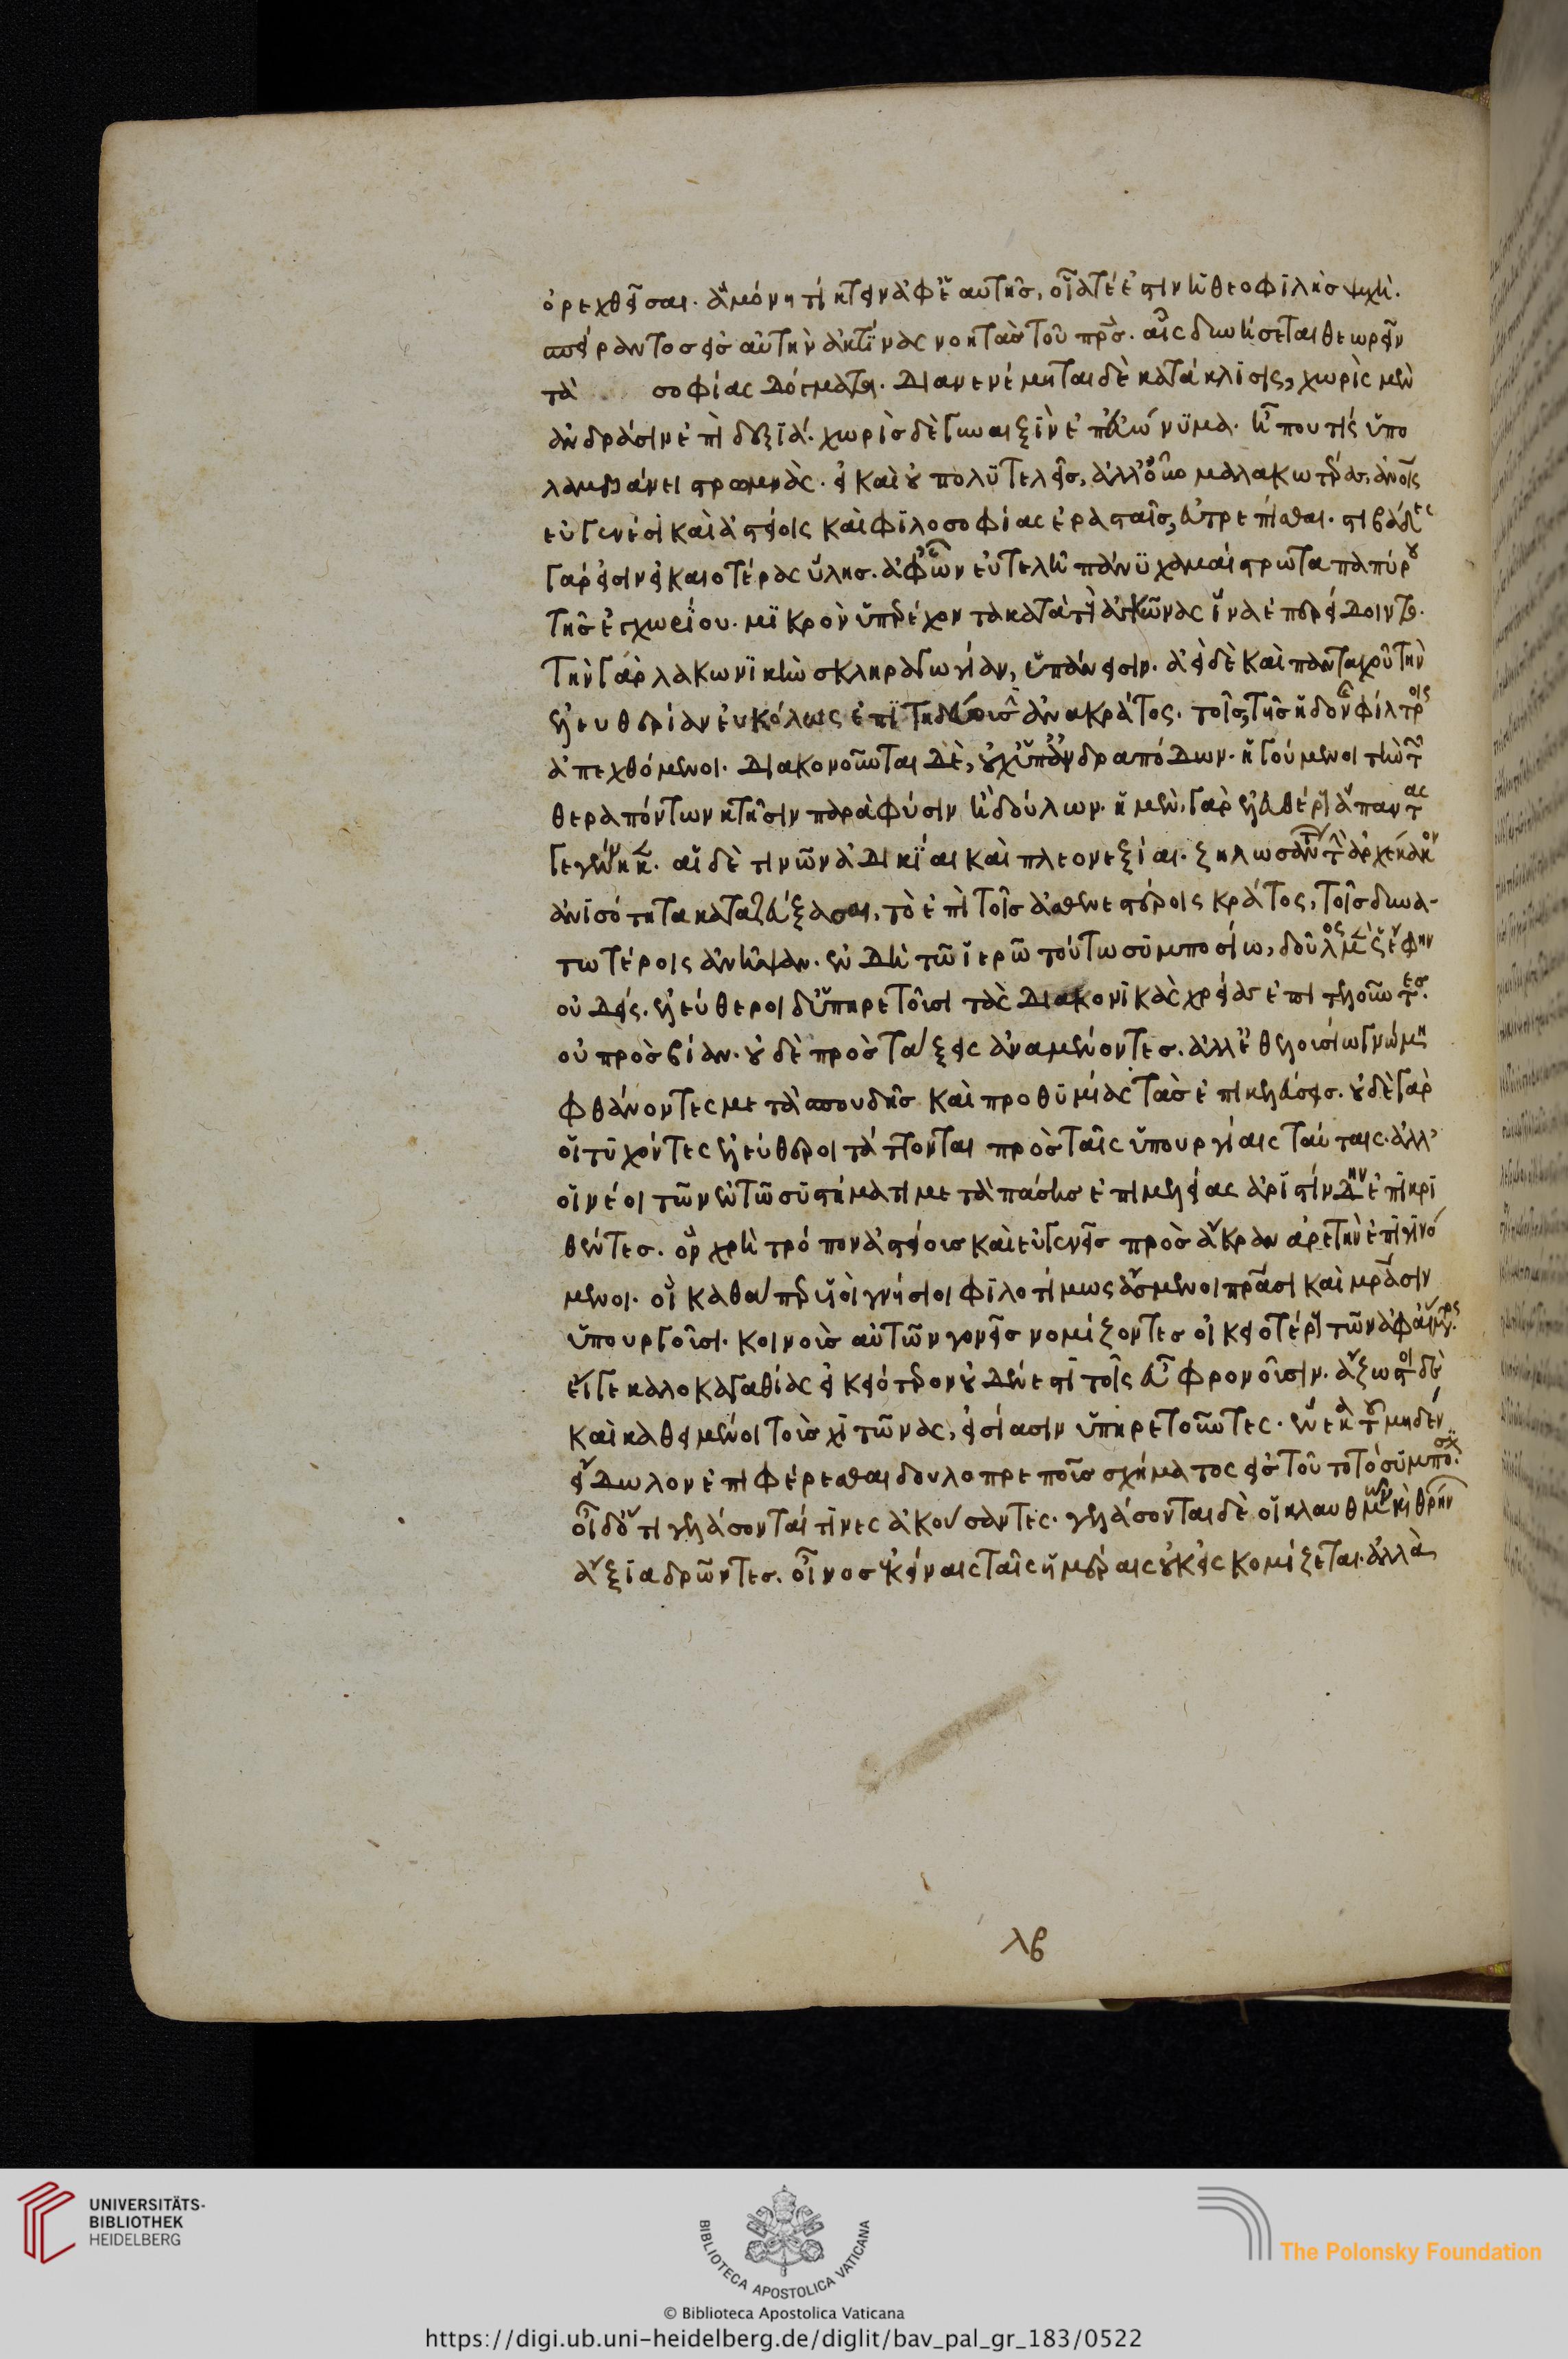 ὀρεχθεῖσαι. ἃ μόνη τίκτειν ἀφ' ἑαυτῆς, οἵα τέ ἐστιν ἡ θεοφιλὴς ψυχή.
σπείραντος εἰς αὐτὴν ἀκτῖνας νοητὰς τοῦ πρς. αἷς δυνήσεται θεωρεῖν
τὰ σοφίας δόγματα. διανενέμηται δὲ κατάκλισις, χωρὶς μὲν
ἀνδράσιν ἐπὶ δεξιά. χωρὶς δὲ γυναιξὶν ἐπ' εὐώνυμα. ἦ που τίς ὑπο
λαμβάνει στρωμνὰς. εἰ καὶ οὐ πολυτελεῖς, ἀλλ' οὖν μαλακωτέρας, ἀνοις
εὐγενέσι καὶ ἀστείοις καὶ φιλοσοφίας ἐρασταῖς, εὐτρεπίσθαι. στιβάδες
γάρ εἰσιν εἰκαιοτέρας ὕλης. ἀφ' ὧν εὐτελῆ πάνυ χαμαίστρωτα παπύρου
τῆς ἐγχωρίου. μικρὸν ὑπερέχοντα κατὰ τοὺς ἀγκῶνας ἵνα ἐπερείδοιντο.
τὴν γὰρ λακωνικὴν σκληραγωγίαν, ὑπάνεισιν. ἀεὶ δὲ καὶ πανταχοῦ τὴν
ἐλευθερίαν εὐκόλως ἐπιτηδεύουσιν ἀνακράτος. τοῖς τῆς ἡδονῆς φίλτροις
ἀπεχθόμενοι. διακονοῦνται δὲ, οὐχ ὑπ' ἀνδραπόδων. ἡγούμενοι τὴν τῶν
θεραπόντων κτῆσιν παρὰ φύσιν ἢ δούλων. ἡ μὲν γὰρ ἐλευθέρους ἅπαντας
γεγέννηκε. αἱ δὲ τινῶν ἀδικίαι καὶ πλεονεξίαι. ζηλωσάντων τὴν ἀρχέκακον
ἀνισότητα καταζεύξασαι, τὸ ἐπὶ τοῖς ἀσθενεστέροις κράτος, τοῖς δυνα-
τωτέροις ἀνῆψαν. ἐν δὴ τῷ ἱερῷ τούτῳ συμποσίῳ, δοῦλος μὲν ὡς ἔφην
οὐδείς. ἐλεύθεροι δ' ὑπηρετοῦσι τὰς διακονικὰς χρείας ἐπιτελοῦντες.
οὐ πρὸς βίαν. οὐδὲ προστάξεις ἀναμένοντες. ἀλλ' ἐθελουσίῳ γνώμῃ
φθάνοντες μετὰ σπουδῆς καὶ προθυμίας τὰς ἐπικελεύσεις. οὐδὲ γὰρ
οἱ τυχόντες ἐλεύθεροι τάττονται πρὸς ταῖς ὑπουργίαις ταύταις. ἀλλ'
οἱ νέοι τῶν ἐν τῷ συστήματι μετὰ πάσης ἐπιμελείας ἀριστίνδην ἐπικρι
θέντες. ὃν χρὴ τρόπον ἀστείους καὶ εὐγενεῖς πρὸς ἄκραν ἀρετὴν ἐπιγινό
μενοι. οἳ καθάπερ υἱοὶ γνήσιοι φιλοτίμως ἄσμενοι πράσι καὶ μράσιν
ὑπουργοῦσι. κοινοὺς αὐτῶν γονεῖς νομίζοντες οἰκειοτέρους τῶν ἀφ' αἵματος.
εἴγε καλοκαγαθίας οἰκειότερον οὐδέν ἐστι τοῖς εὖ φρονοῦσιν. ἄζωστοι δὲ
καὶ καθειμένοι τοὺς χιτῶνας, εἰσίασιν ὑπηρετοῦντες. ἕνεκα τοῦ μηδὲν
εἴδωλον ἐπιφέρεσθαι δουλοπρεποῦς σχήματος εἰς τοῦτο τὸ συμπόσ.
οἶδ' ὅτι γελάσονταί τινες ἀκούσαντες. γελάσονται δὲ οἱ κλαυθμῶν καὶ θρήνων
ἄξια δρῶντες. οἶνος ἐκείναις ταῖς ἡμέραις οὐκ εἰσκομίζεται. ἀλλὰ
λβ
UNIVERSITÄTS-
BIBLIOTHEK
HEIDELBERG
BIBLIOTECA APOSTOLICA VATICANA
The Polonsky Foundation
© Biblioteca Apostolica Vaticana
https://digi.ub.uni-heidelberg.de/diglit/bav_pal_gr_183/0522